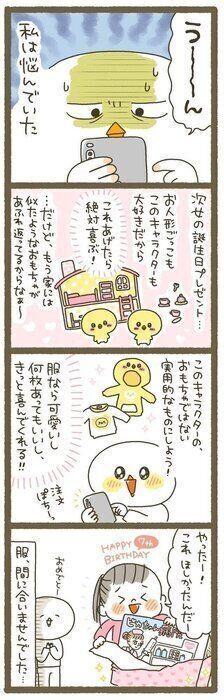 う〜〜〜ん
私は悩んでいた
次女の誕生日プレゼント…
お人形ごっこも
このキャラクターも
大好きだから
これあげたら
絶対喜ぶ！
…だけど、もう家には
似たようなおもちゃが
あふれ返ってるからなぁ〜
このキャラクターの、
おもちゃではない
実用的なものにしよう！
服なら可愛いし
何枚あってもいいし、
きっと喜んでくれる!!
注文
ぽちっ
やったー！
これ ほしかったんだー
HAPPY 7th
BIRTHDAY
おめでとう
服、間に合いませんでした…